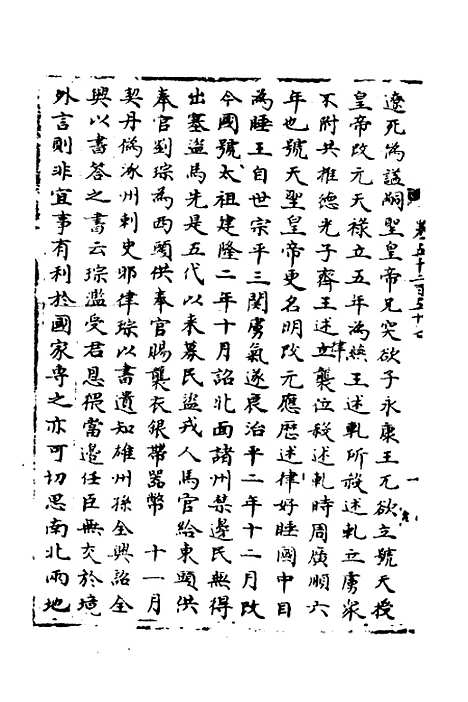 卷五千二百五十七
一
遼死偽諡嗣聖皇帝兄突欲子永康王兀欲立號天授
皇帝改元天祿立五年為燕王述軋所殺述軋立虜眾
不附共推德光子齊王述律立襲位殺述軋時周廣順六
年也號天聖皇帝更名明改元應歷述律好睡國中目
為睡王自世宗平三関虜氣遂衰治平二年十二月改
今國號太祖建隆二年十月詔北面諸州禁邊民無得
出塞盜馬先是五代以來募民盜戎人馬官給東頭供
奉官劉琮為西頭供奉官賜襲衣銀帶器幣 十一月
契丹偽涿州刺史耶律琮以書遺知雄州孫全興詔全
興以書答之書云琮濫受君恩猥當邊任臣無交於境
外言則非宜事有利於國家專之亦可切思南北兩地